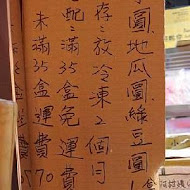 圓、地瓜圓、綠豆圓
存:放冷凍2個月
配:滿35盒免運費
未滿35盒運費170